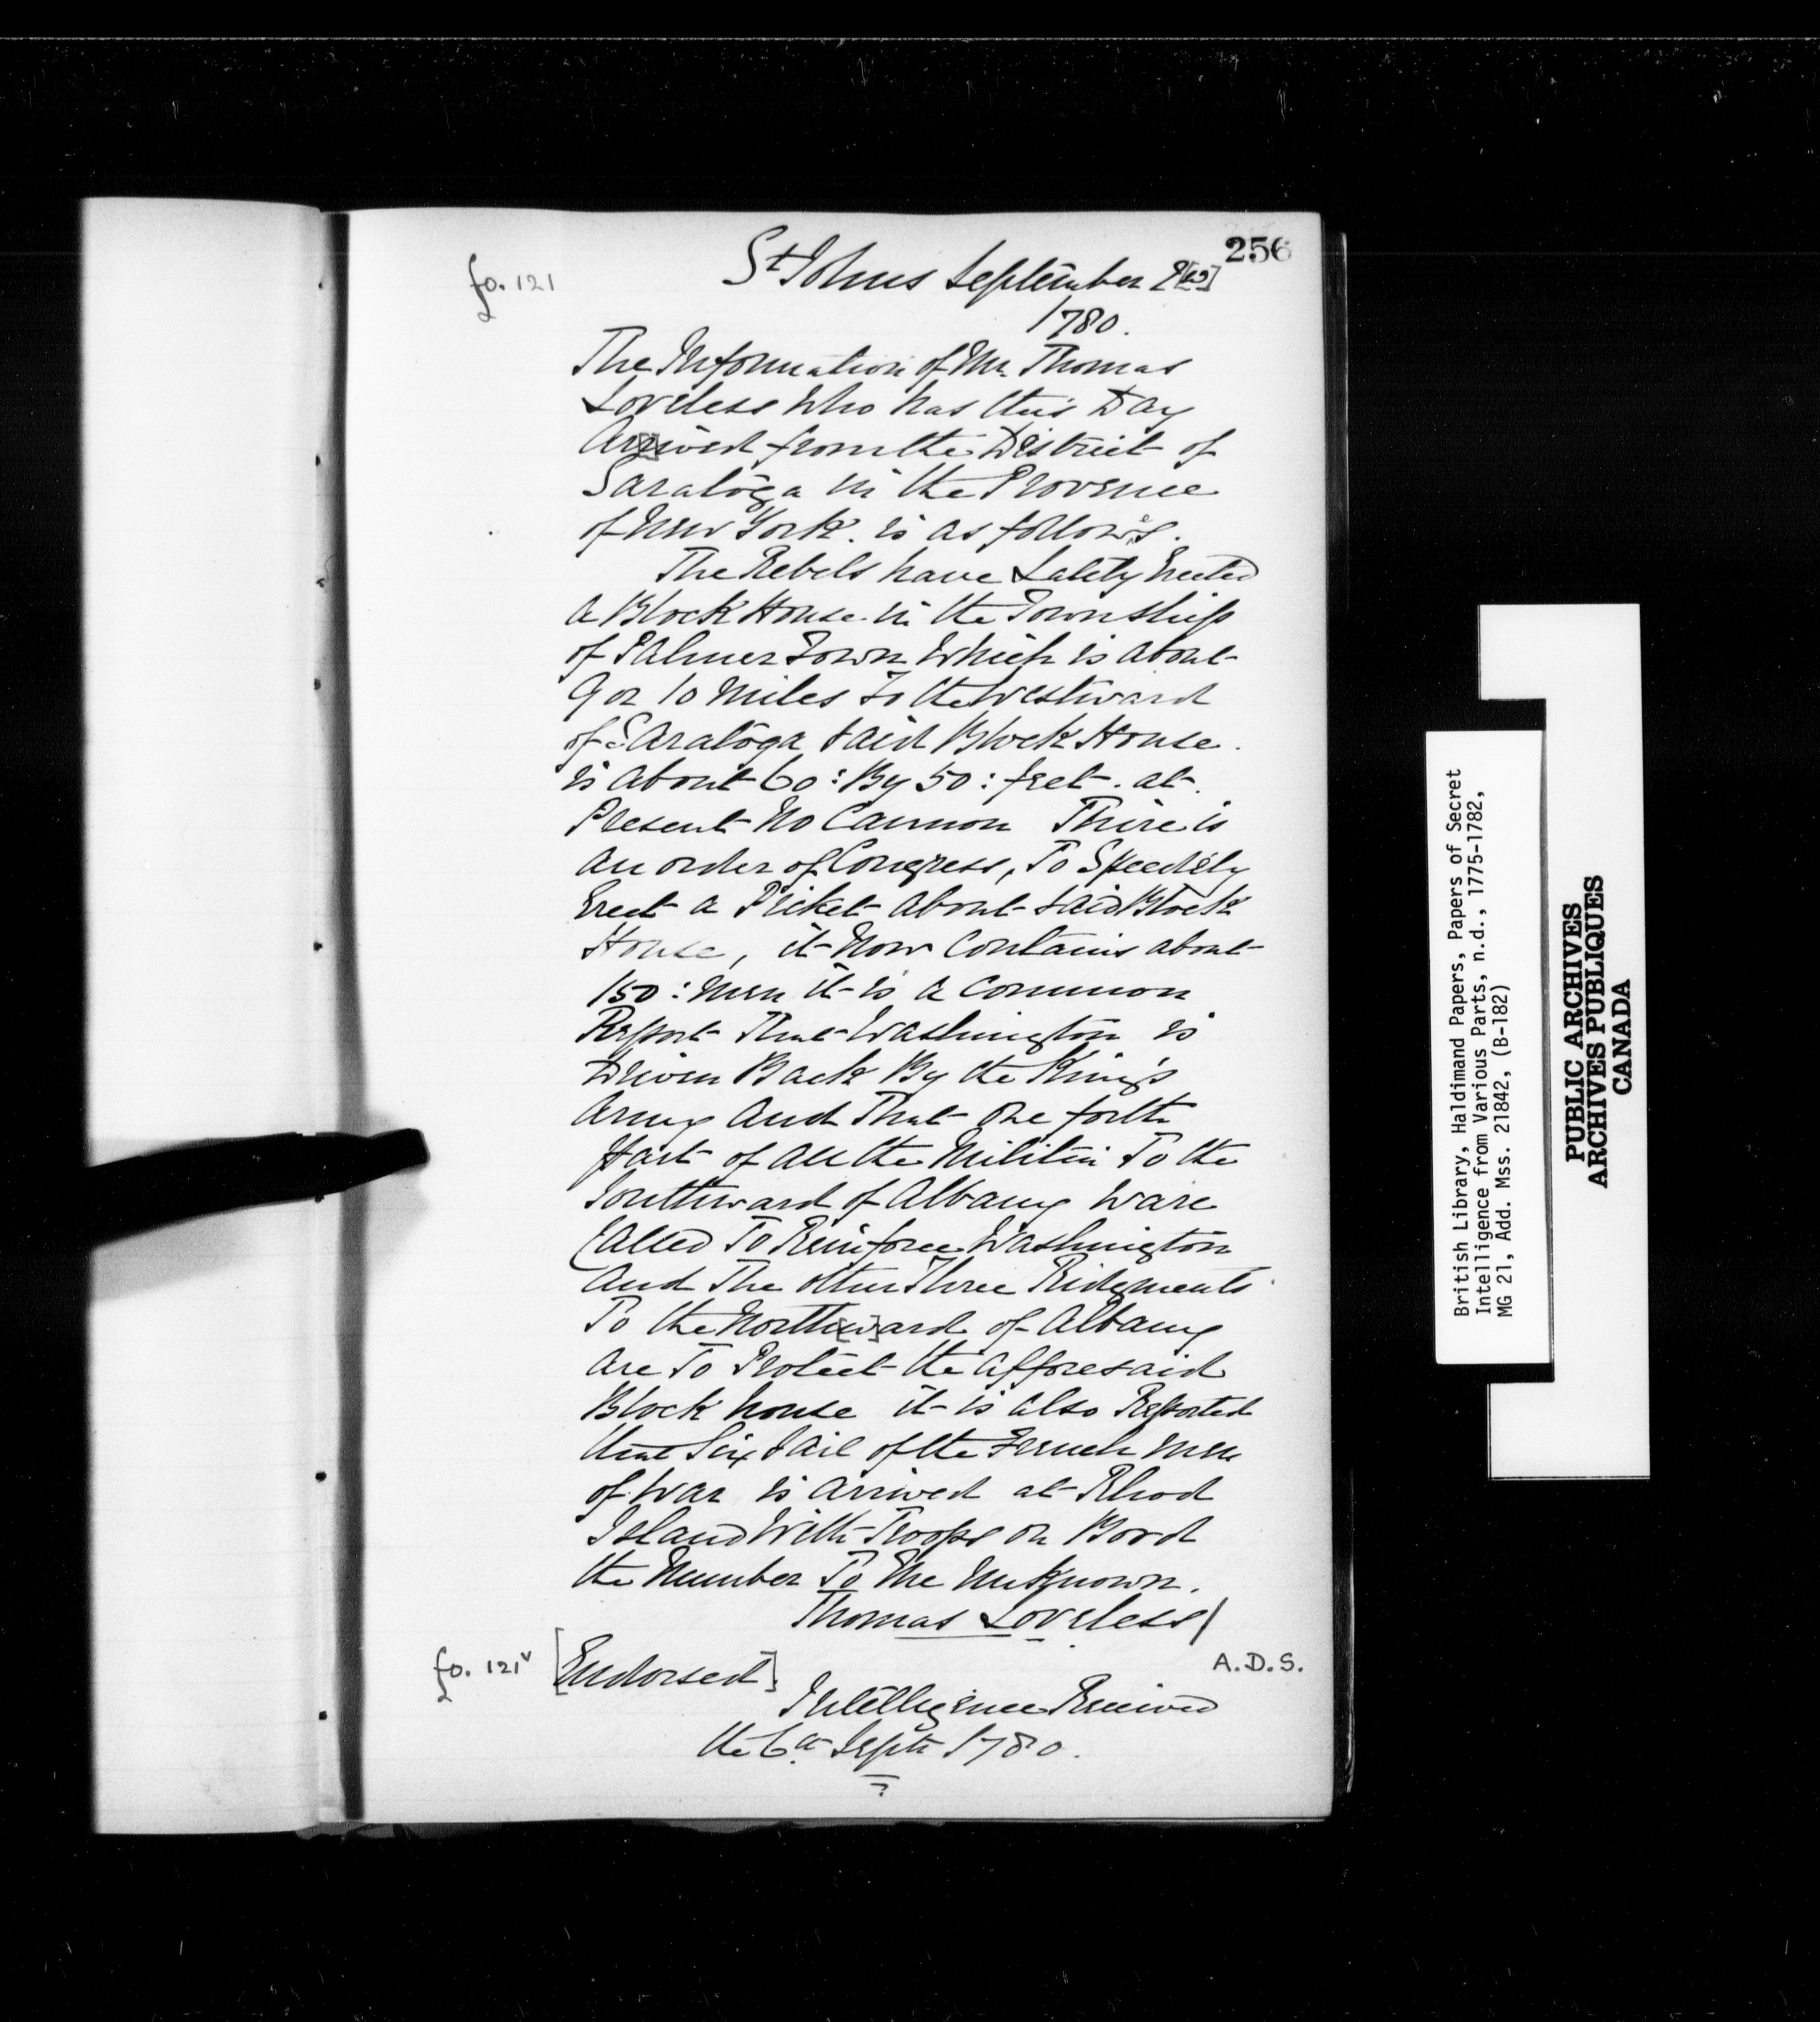 256
fo. 121
St Johns September
1780.
The Information of Mr. Thomas
Loveless Who has this Day
Arrived from the District of
Saratoga in the Provence
of New York. is as follows.
The Rebels have Lately Erected
a Block House in the Township
of Palmer Town Which is about
9 or 10 Miles To the Westward
of Saratoga Said Block House.
is about 60: By 50: feet. at.
Present No Cannon There is
an order of Congress, To Speedily
Erect a Picket about Said Block
House, it Now Contains about
150: Men it is a Common
Report That Washington is
Driven Back By the King's
Army And That one forth
Part of all the Militia To the
Southward of Albany Ware
Called To Reinforce Washington
And The other Three Ridgments
To the North[w]ard of Albany
are To Protect the afforesaid
Block house it is also Reported
that Six Sail of the French Men
of War is arrived at Rhod
Island With Troops on Bord
the Number To Me Unknown.
Thomas Loveless/
A.D.S.
fo. 121v [Endorsed]
Intelligence Received
the 6th Septr 1780.
British Library, Haldimand Papers, Papers of Secret
Intelligence from Various Parts, n.d., 1775-1782,
MG 21, Add. Mss. 21842, (B-182)
PUBLIC ARCHIVES
ARCHIVES PUBLIQUES
CANADA